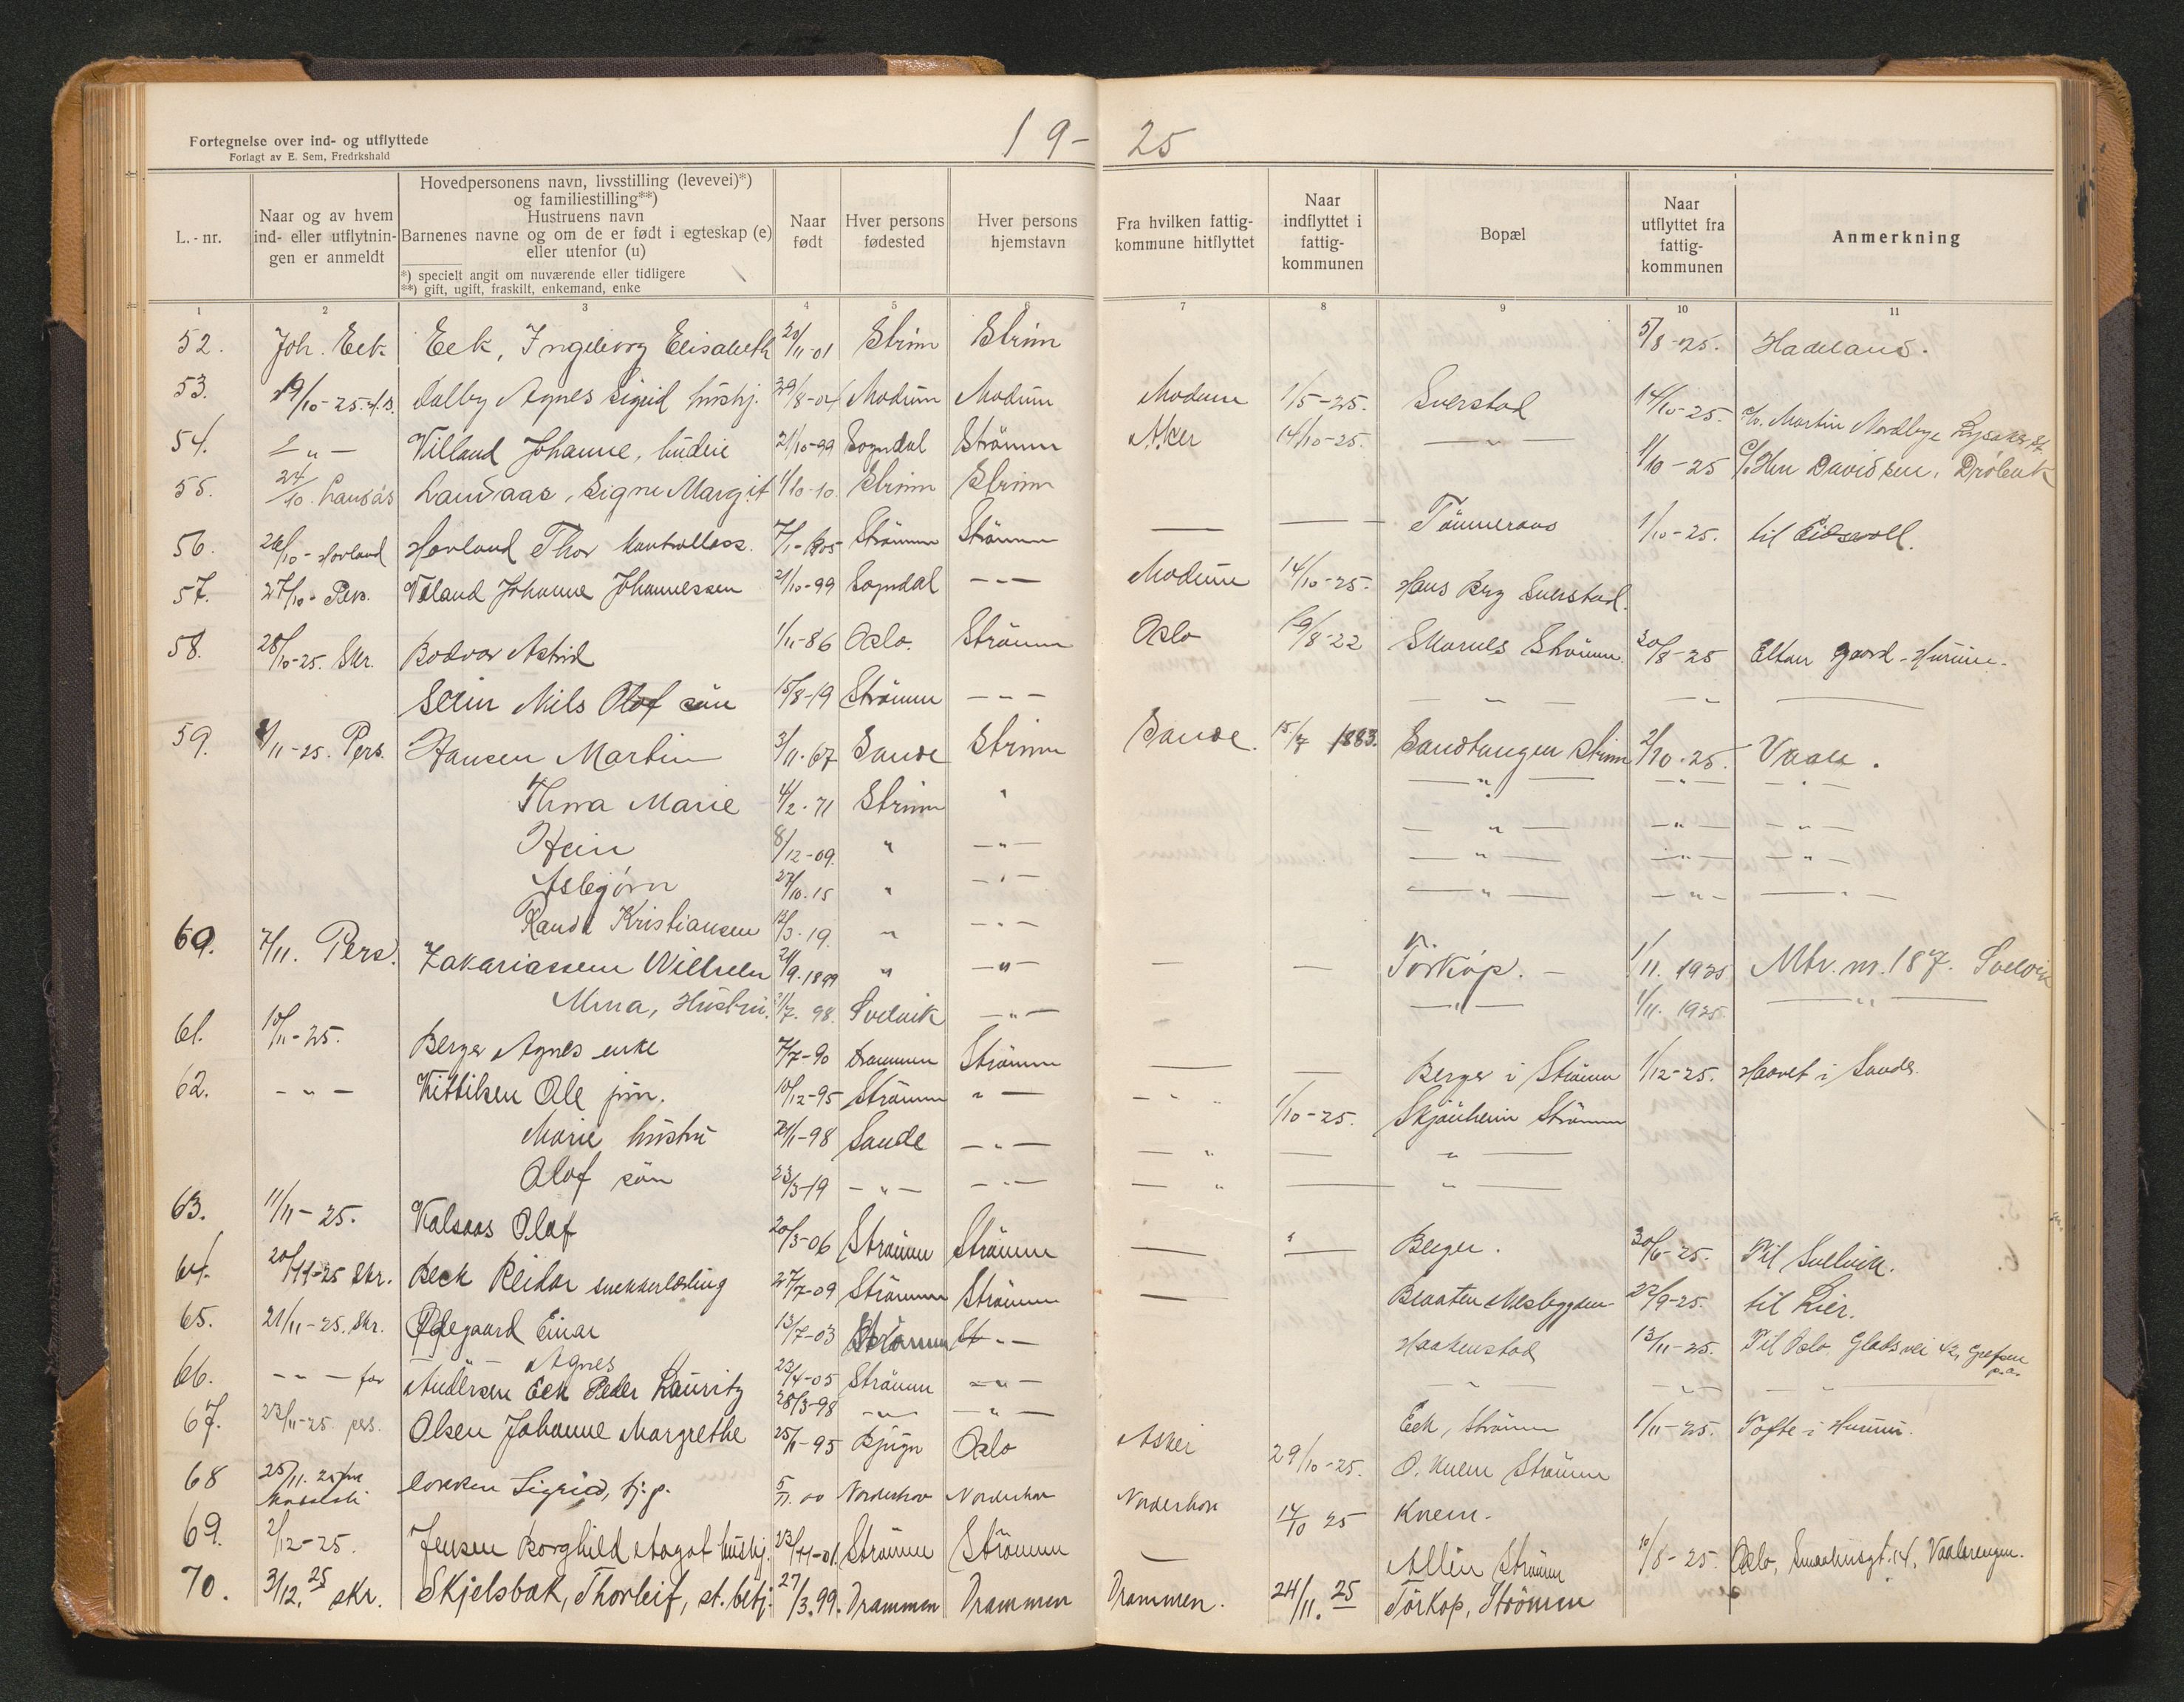 Fortegnelse over ind- og utflyttede
Forlagt av E. Sem, Fredrkshald
19-25
L.-nr.
Naar og av hvem ind- eller utflytningen er anmeldt
Hovedpersonens navn, livsstilling (levevei)*)
og familiestilling**)
Hustruens navn
Barnenes navne og om de er født i egteskap (e)
eller utenfor (u)
*) specielt angit om nuværende eller tidligere
**) gift, ugift, fraskilt, enkemand, enke
Naar født
Hver persons fødested
Hver persons hjemstavn
Fra hvilken fattig-kommune hitflyttet
Naar indflyttet i fattig-kommunen
Bopæl
Naar utflyttet fra fattig-kommunen
Anmerkning
1 2 3 4 5 6 7 8 9 10 11
52. Joh. Eek Eek, Ingeborg Elisabeth /11-01 Strøm Strøm 5/8-25. Hadeland.
53. 19/10-25 Dalby Agnes Sigrid hushj. 29/8-04 Modum Modum Modum 1/5-25. Sverstad 14/10-25. Martin Nordbye Lysaker st.
54. -"- Villand Johanne, 21/10-99 Sogndal Strömm Aker 14/10-25. -"-
55. 24/10. Landaas Landaas, Signe Margit 1/10-10. Strøm Strøm 1/10-25 c/o Hrr Davidsen, Drøbak
56. 26/10-Hovland Hovland Thor Kontrollass. 7/1-1905 Strömm Strömm — — Tömmeraas 1/10-25. til Eidsvoll.
57. 27/10-Pers. Viland Johanne Johannessen 21/10-99 Sogndal -"- Modum 14/10-25. Hans Berg Sverstad.
58. 28/10-25. Skr. Bodvar Astrid 1/11-86 Oslo. Strömm Oslo 19/8-22 Skarnes Strömm. 30/8-25 Elton gaard-Hurum.
Nils Olof sön 15/8-19 Strömm -"- -"- -"-
59. /11-25. Pers. Hansen Martin 3/11.67 Sande Strøm Sande. 15/7 1883. Sandtangen Strøm 2/10.25. Vaale.
Thora Marie 4/2.71 Strøm " -"- -"- -"-
Hein 8/12-09. " -"- -"- -"- -"-
Asbjørn 27/10.15 " -"- -"- -"- -"-
Randi Kristiansen 12/3.19. " -"- -"- -"- -"-
60. 7/11. Pers. Zakariassen Wilhelm 21/9.1899 " -"- — — Törkop. 1/11.1925 Mtr.nr.187. Svelvik
Mina, Hustru. /7.98. Svelvik -"- -"- 1/11.1925 -"-
61. 10/11-25. Berger Agnes enke 7/7-90 Drammen Strömm — — Berger i Strömm 1/12-25. Haavet i Sande.
62. -"- Kittilsen Ole jun. 10/12-95 Strömm "- -"- 1/10-25. Skjönheim Strömm
Marie hustru 21/1-98 Sande -"- -"- — -"-
Olof sön 23/3-19 -"- -"- -"- — -"-
63. 11/11-25. Kalsaas Olaf 20/3-06 Strömm Strömm — — Berger. 30/6-25. Til Svelvik.
64. 20/11-25 Skr. Beck Reidar snekkerlærling 27/7-09 Strömm Strömm — Braaten Nesbygden 22/9-25. til Lier.
65. 21/11-25. Skr. Ødegaard Einar 13/7-03 Strömm -"- Haakenstad 13/11-25. Til Oslo. Gladsvei 42, Grefsen p.a.
Agnes 23/4-05 Strömm -"- -"- -"- -"-
66. -"- for Andersen Eek Peder Lauritz 28/3-98 -"- -"- Eek, Strömm 1/11-25. Tofte i Hurum.
67. 23/11-25. pers. Olsen Johanne Margrethe 25/11-95 Bjugn Oslo Asker 29/10-25. O. Knem Strömm
68 25/11. 25 Lokken Sigrid, tj.p. 5/11.00 Norderhov Norderhov Norderhov 14/10 25 Knem.
69. 2/12-25. Jensen Borghild Aagot hushj. 23/11-01. Strömm Strömm — Allin Strömm 10/8-25. Oslo, Smaahusgt. 14, Vaalerengen.
70. 3/12.25 skr. Skjelsbæk, Thorleif, st.betj. 27/3.99. Drammen Drammen Drammen. 24/11.25 Törkop, Strömm